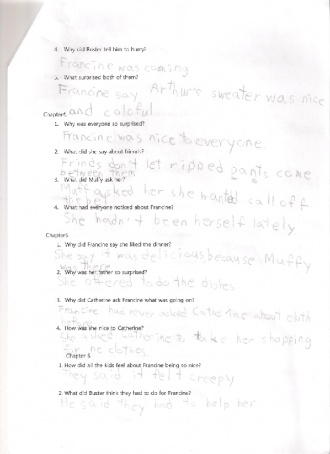 4. Why did Buster tell him to hurry?
Francine was coming
5. What surprised both of them?
Francine say Arthur's sweater was nice
and coloful
Chapter4
1. Why was everyone so surprised?
Francine was nice to everyone
2. What did she say about friends?
Frinds don't let ripped pants come
between them
3. What did Muffy ask her?
Muff asked her she wanted call off
the bet
4. What had everyone noticed about Francine?
She hadn't been herself lately
Chapter5
1. Why did Francine say she liked the dinner?
She say it was delicious because Muffy
was there
2. Why was her father so surprised?
She offered to do the dishes
3. Why did Catherine ask Francine what was going on?
Francine had never asked Catherine about cloth
before
4. How was she nice to Catherine?
She asked Catherine to take her shopping
for new clothes
Chapter 6
1. How did all the kids feel about Francine being so nice?
They said it felt creepy
2. What did Buster think they had to do for Francine?
He said they had to help her